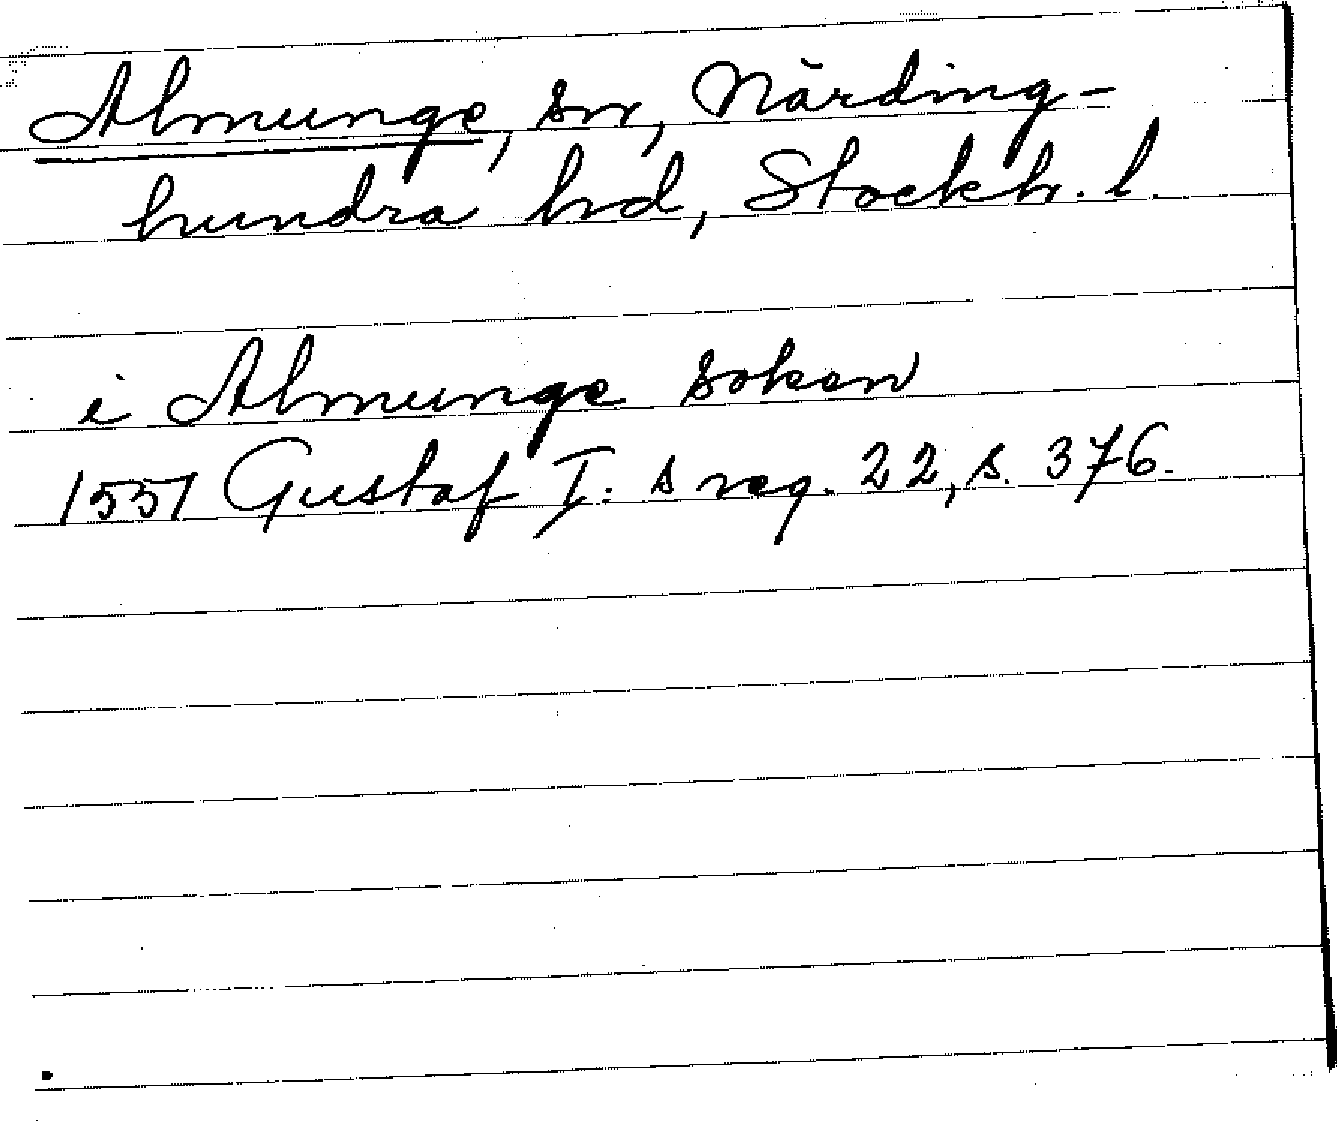 Almunge, sn, Närding-
hundra hd, Stockh. l.
i Almunge soken
1551 Gustaf I:s reg. 22, s. 376.